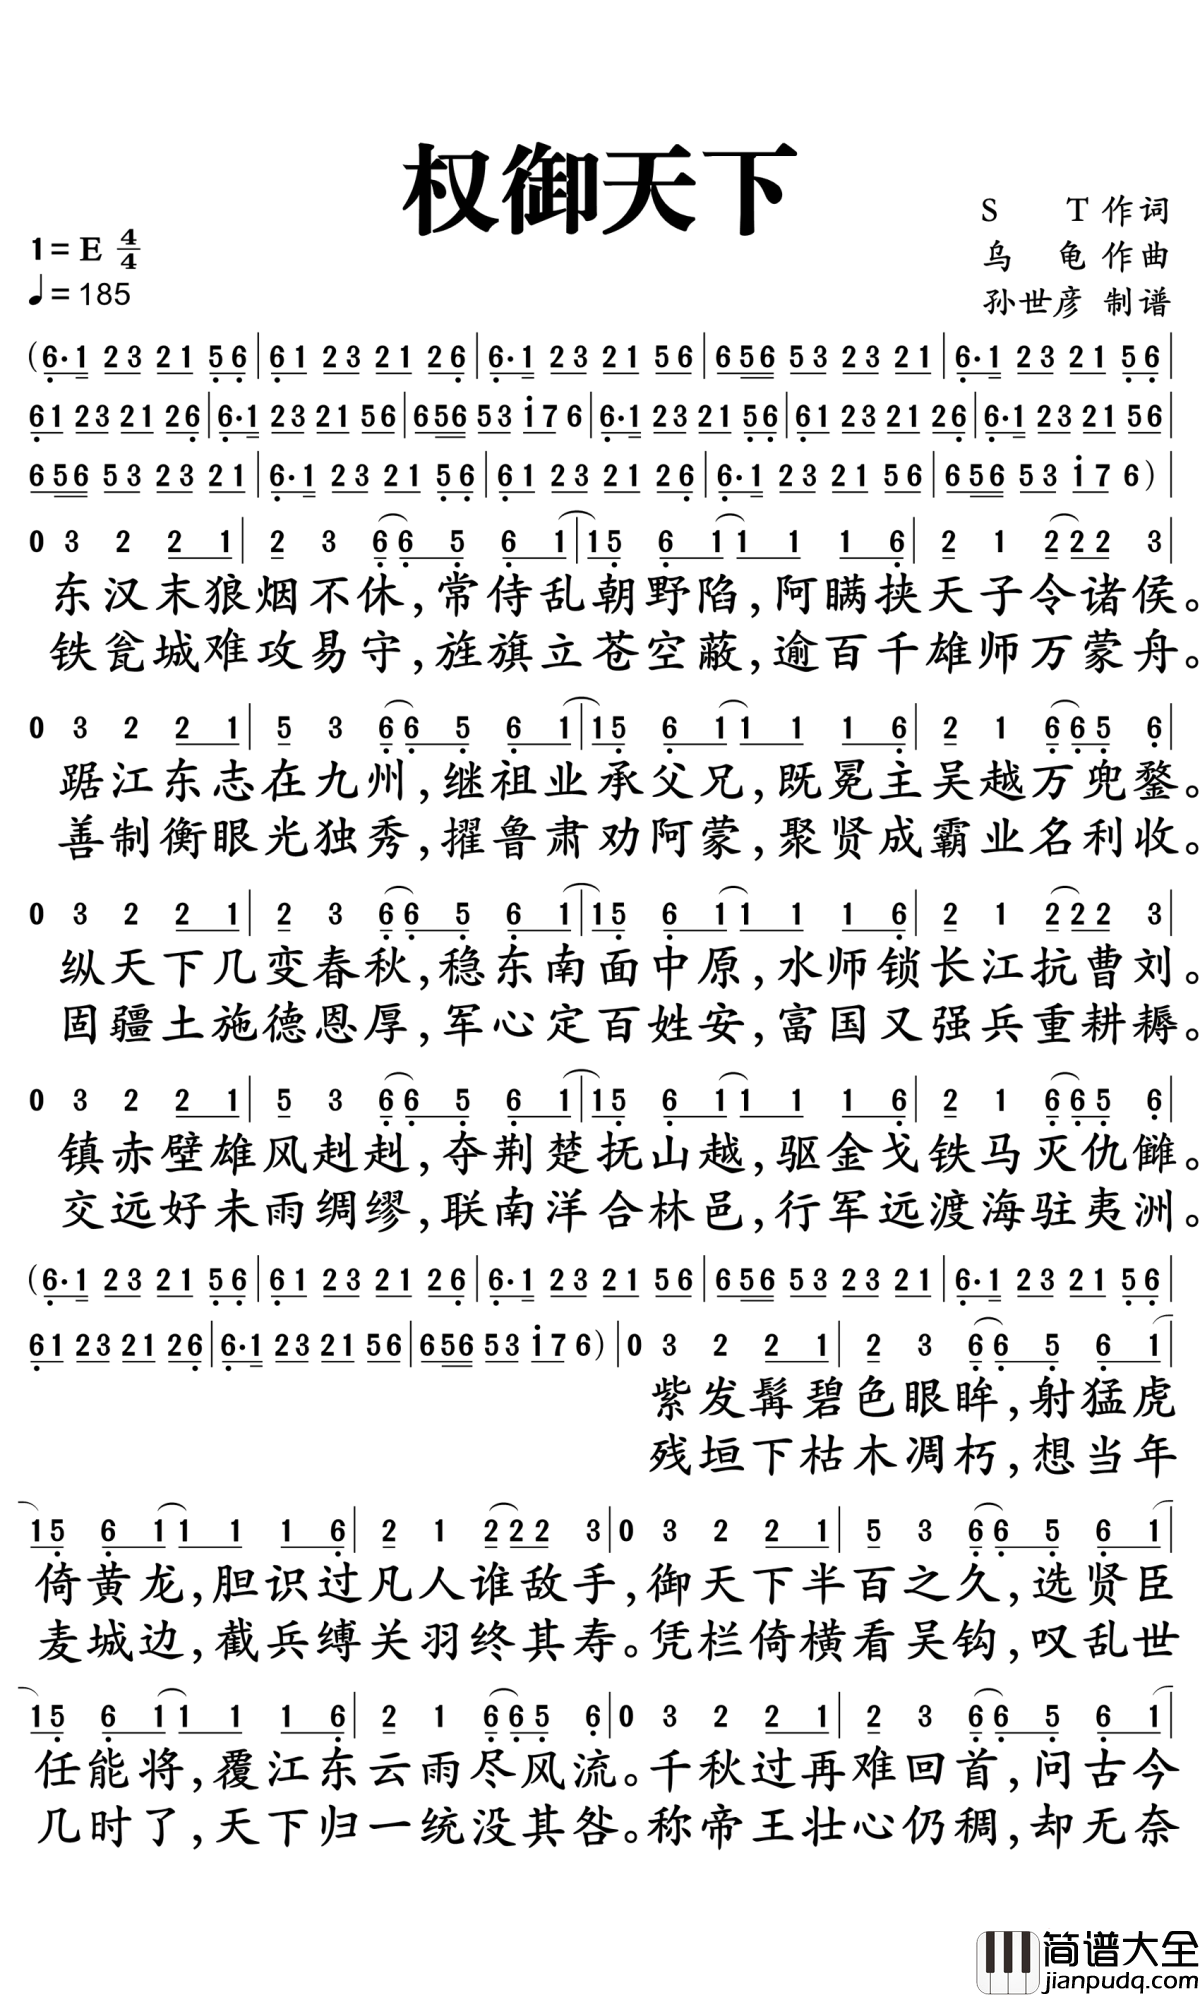 权御天下
S T 作词
1= E 4/4
乌 龟 作曲
♩= 185
孙世彦 制谱
(6·1 23 21 56|61 23 21 26|6·1 23 21 56|656 53 23 21|6·1 23 21 56|
61 23 21 26|6·1 23 21 56|656 53 i7 6|6·1 23 21 56|61 23 21 26|6·1 23 21 56|
656 53 23 21|6·1 23 21 56|61 23 21 26|6·1 23 21 56|656 53 i7 6)|
0 3 2 2 1|2 3 6 6 5 6 1|1 5 6 1 1 1 1 6|2 1 2 2 2 3|
东汉末狼烟不休,常侍乱朝野陷,阿瞒挟天子令诸侯。
铁瓮城难攻易守,旌旗立苍空蔽,逾百千雄师万蒙舟。
0 3 2 2 1|5 3 6 6 5 6 1|1 5 6 1 1 1 1 6|2 1 6 6 5 6|
踞江东志在九州,继祖业承父兄,既冕主吴越万兜鍪。
善制衡眼光独秀,擢鲁肃劝阿蒙,聚贤成霸业名利收。
0 3 2 2 1|2 3 6 6 5 6 1|1 5 6 1 1 1 1 6|2 1 2 2 2 3|
纵天下几变春秋,稳东南面中原,水师锁长江抗曹刘。
固疆土施德恩厚,军心定百姓安,富国又强兵重耕耨。
0 3 2 2 1|5 3 6 6 5 6 1|1 5 6 1 1 1 1 6|2 1 6 6 5 6|
镇赤壁雄风赳赳,夺荆楚抚山越,驱金戈铁马灭仇雠。
交远好未雨绸缪,联南洋合林邑,行军远渡海驻夷洲。
(6·1 23 21 56|61 23 21 26|6·1 23 21 56|656 53 23 21|6·1 23 21 56|
61 23 21 26|6·1 23 21 56|656 53 i7 6)|0 3 2 2 1|2 3 6 6 5 6 1|
紫发髯碧色眼眸,射猛虎
残垣下枯木凋朽,想当年
1 5 6 1 1 1 1 6|2 1 2 2 2 3|0 3 2 2 1|5 3 6 6 5 6 1|
倚黄龙,胆识过凡人谁敌手,御天下半百之久,选贤臣
麦城边,截兵缚关羽终其寿。凭栏倚横看吴钩,叹乱世
1 5 6 1 1 1 1 6|2 1 6 6 5 6|0 3 2 2 1|2 3 6 6 5 6 1|
任能将,覆江东云雨尽风流。千秋过再难回首,问古今
几时了,天下归一统没其咎。称帝王壮心仍稠,却无奈
简谱大全
jianpudq.com